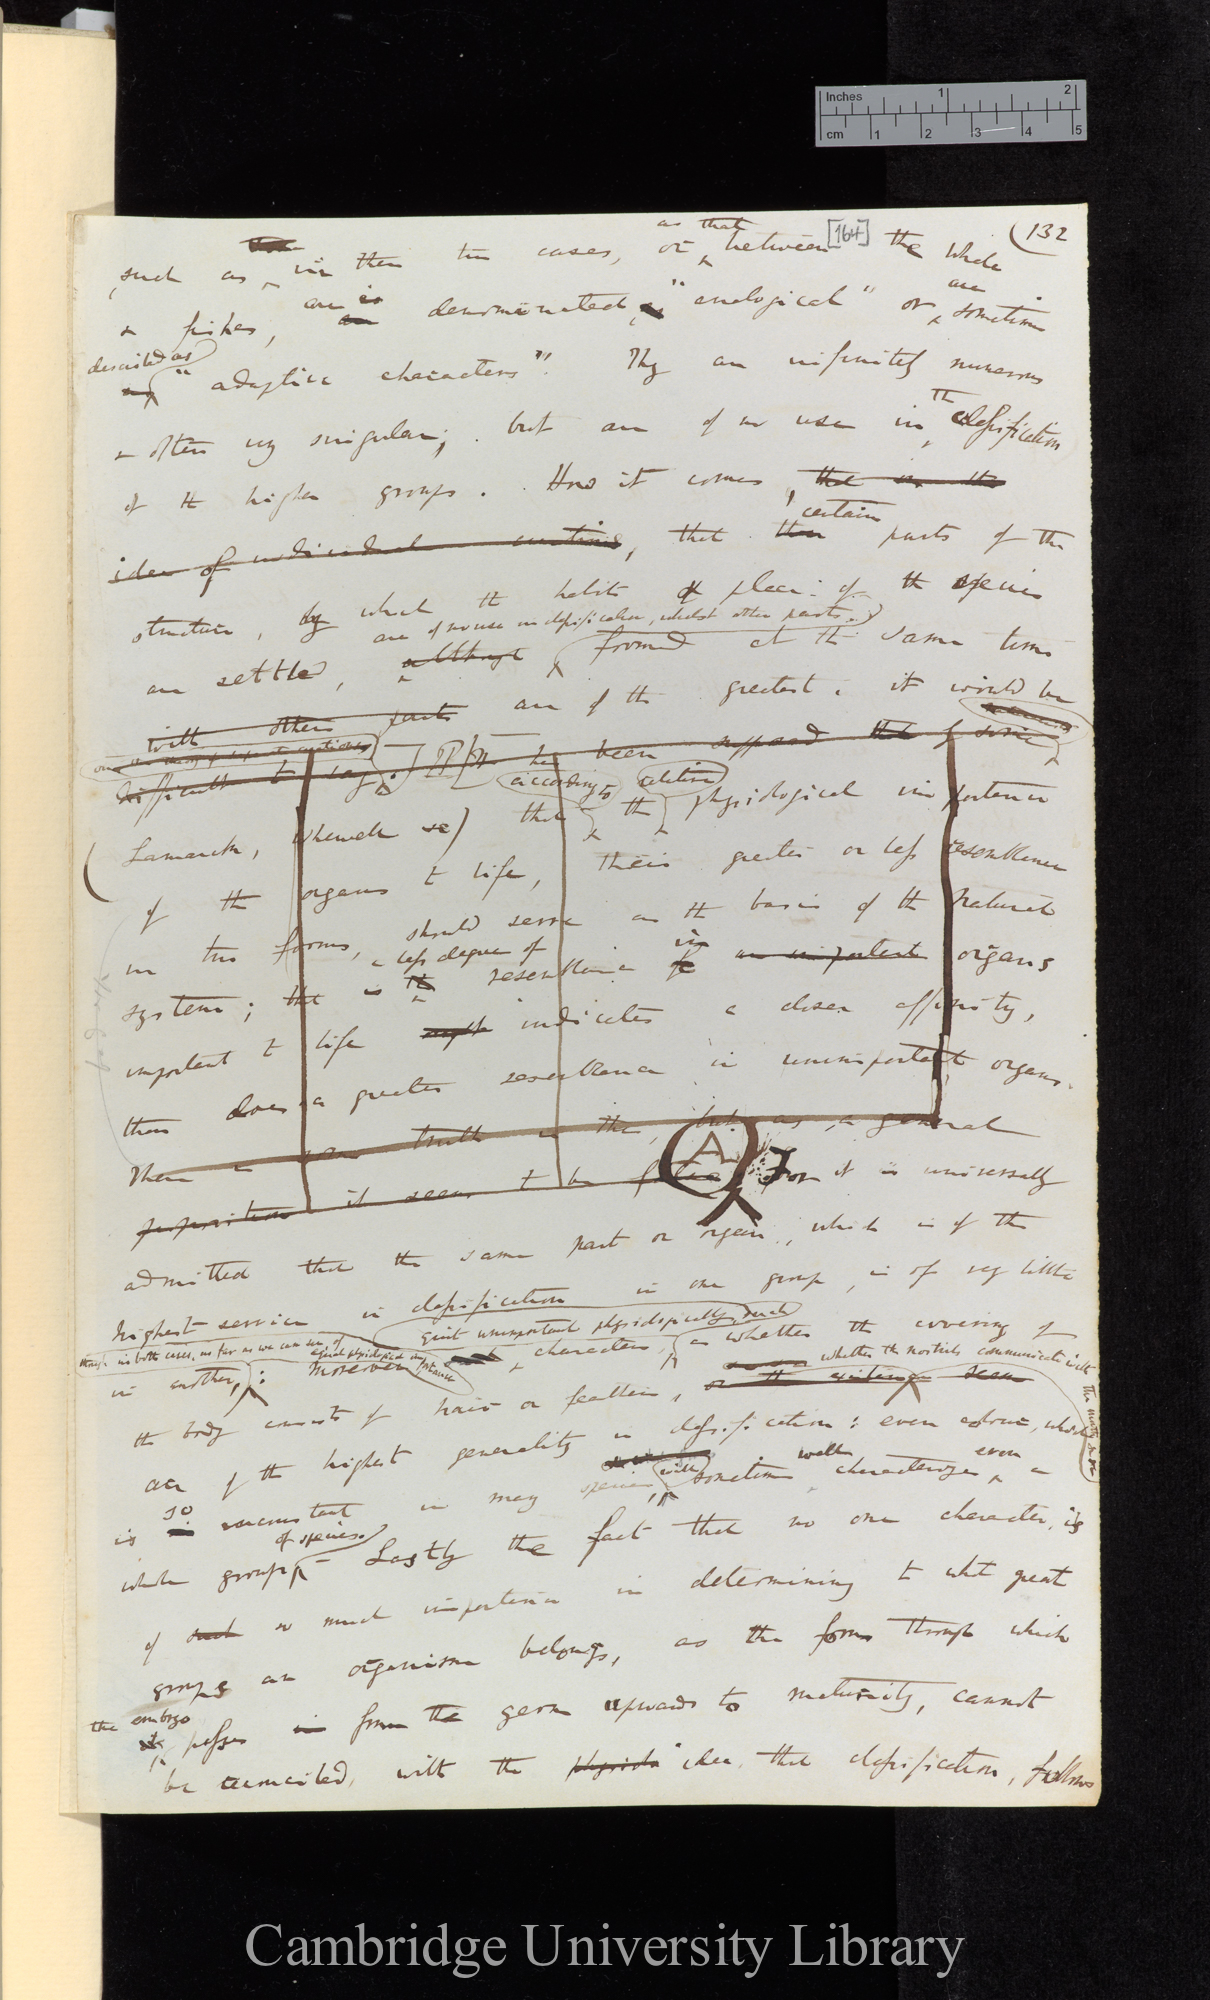 Inches 1 2
cm 1 2 3 4 5
[164] (132
as that
such as in these two cases, or between the whale
are is are
& fishes, denominated "analogical" or sometimes
described as
"adaptive characters". They are infinitely numerous
the
& often very singular; but are of no use in classification
of the higher groups. How it comes, that on the
certain
idea of individual creations, that these parts of the
structure, by which the habits & place of the species
are of no use in classification, whilst other parts,
are settled, although formed at the same time
with other parts are of the greatest, it would be
difficult to say. It has been supposed that of some
according to relative
(Lamarck, Whewell &c) that the physiological importance
of the organs to life, their greater or less resemblance
in two forms, should serve as the basis of the natural
a less degree of in
system; that is the resemblance of an important organs
important to life might indicates a closer affinity,
than does a greater resemblance in unimportant organs.
There is some truth in this, but as a general
A
proposition it seems to be false, For it is universally
admitted that the same part or organ, which is of the
highest service in classification in one group, is of very little
though in both cases, as far as we can see, of equal physiological importance
quite unimportant physiologically, such
in another: moreover characters, as whether the covering of
whether the nostrils communicate with the mouth &c
the body consists of hair or feathers, or the existing
are of the highest generality in classification: even colour, which
so well even
is inconstant in many species, will sometimes characterize a
of species.
whole group. Lastly the fact that no one character is
of such so much importance in determining to what great
groups an organism belongs, as the forms through which
the embryo
it passes in from the germ upwards to maturity, cannot
be reconciled, with the idea that classification, follows
Cambridge University Library